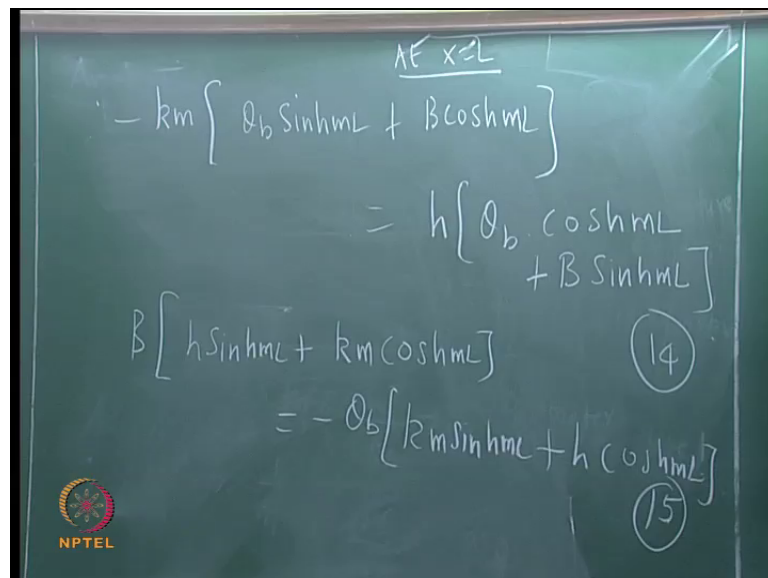 At x=L
- km [ θb sinhmL + B coshmL ]
= h [ θb coshmL
+ B sinhmL ]
14
B [ h sinhmL + km coshmL ]
= - θb [ km sinhmL + h coshmL ]
15
NPTEL